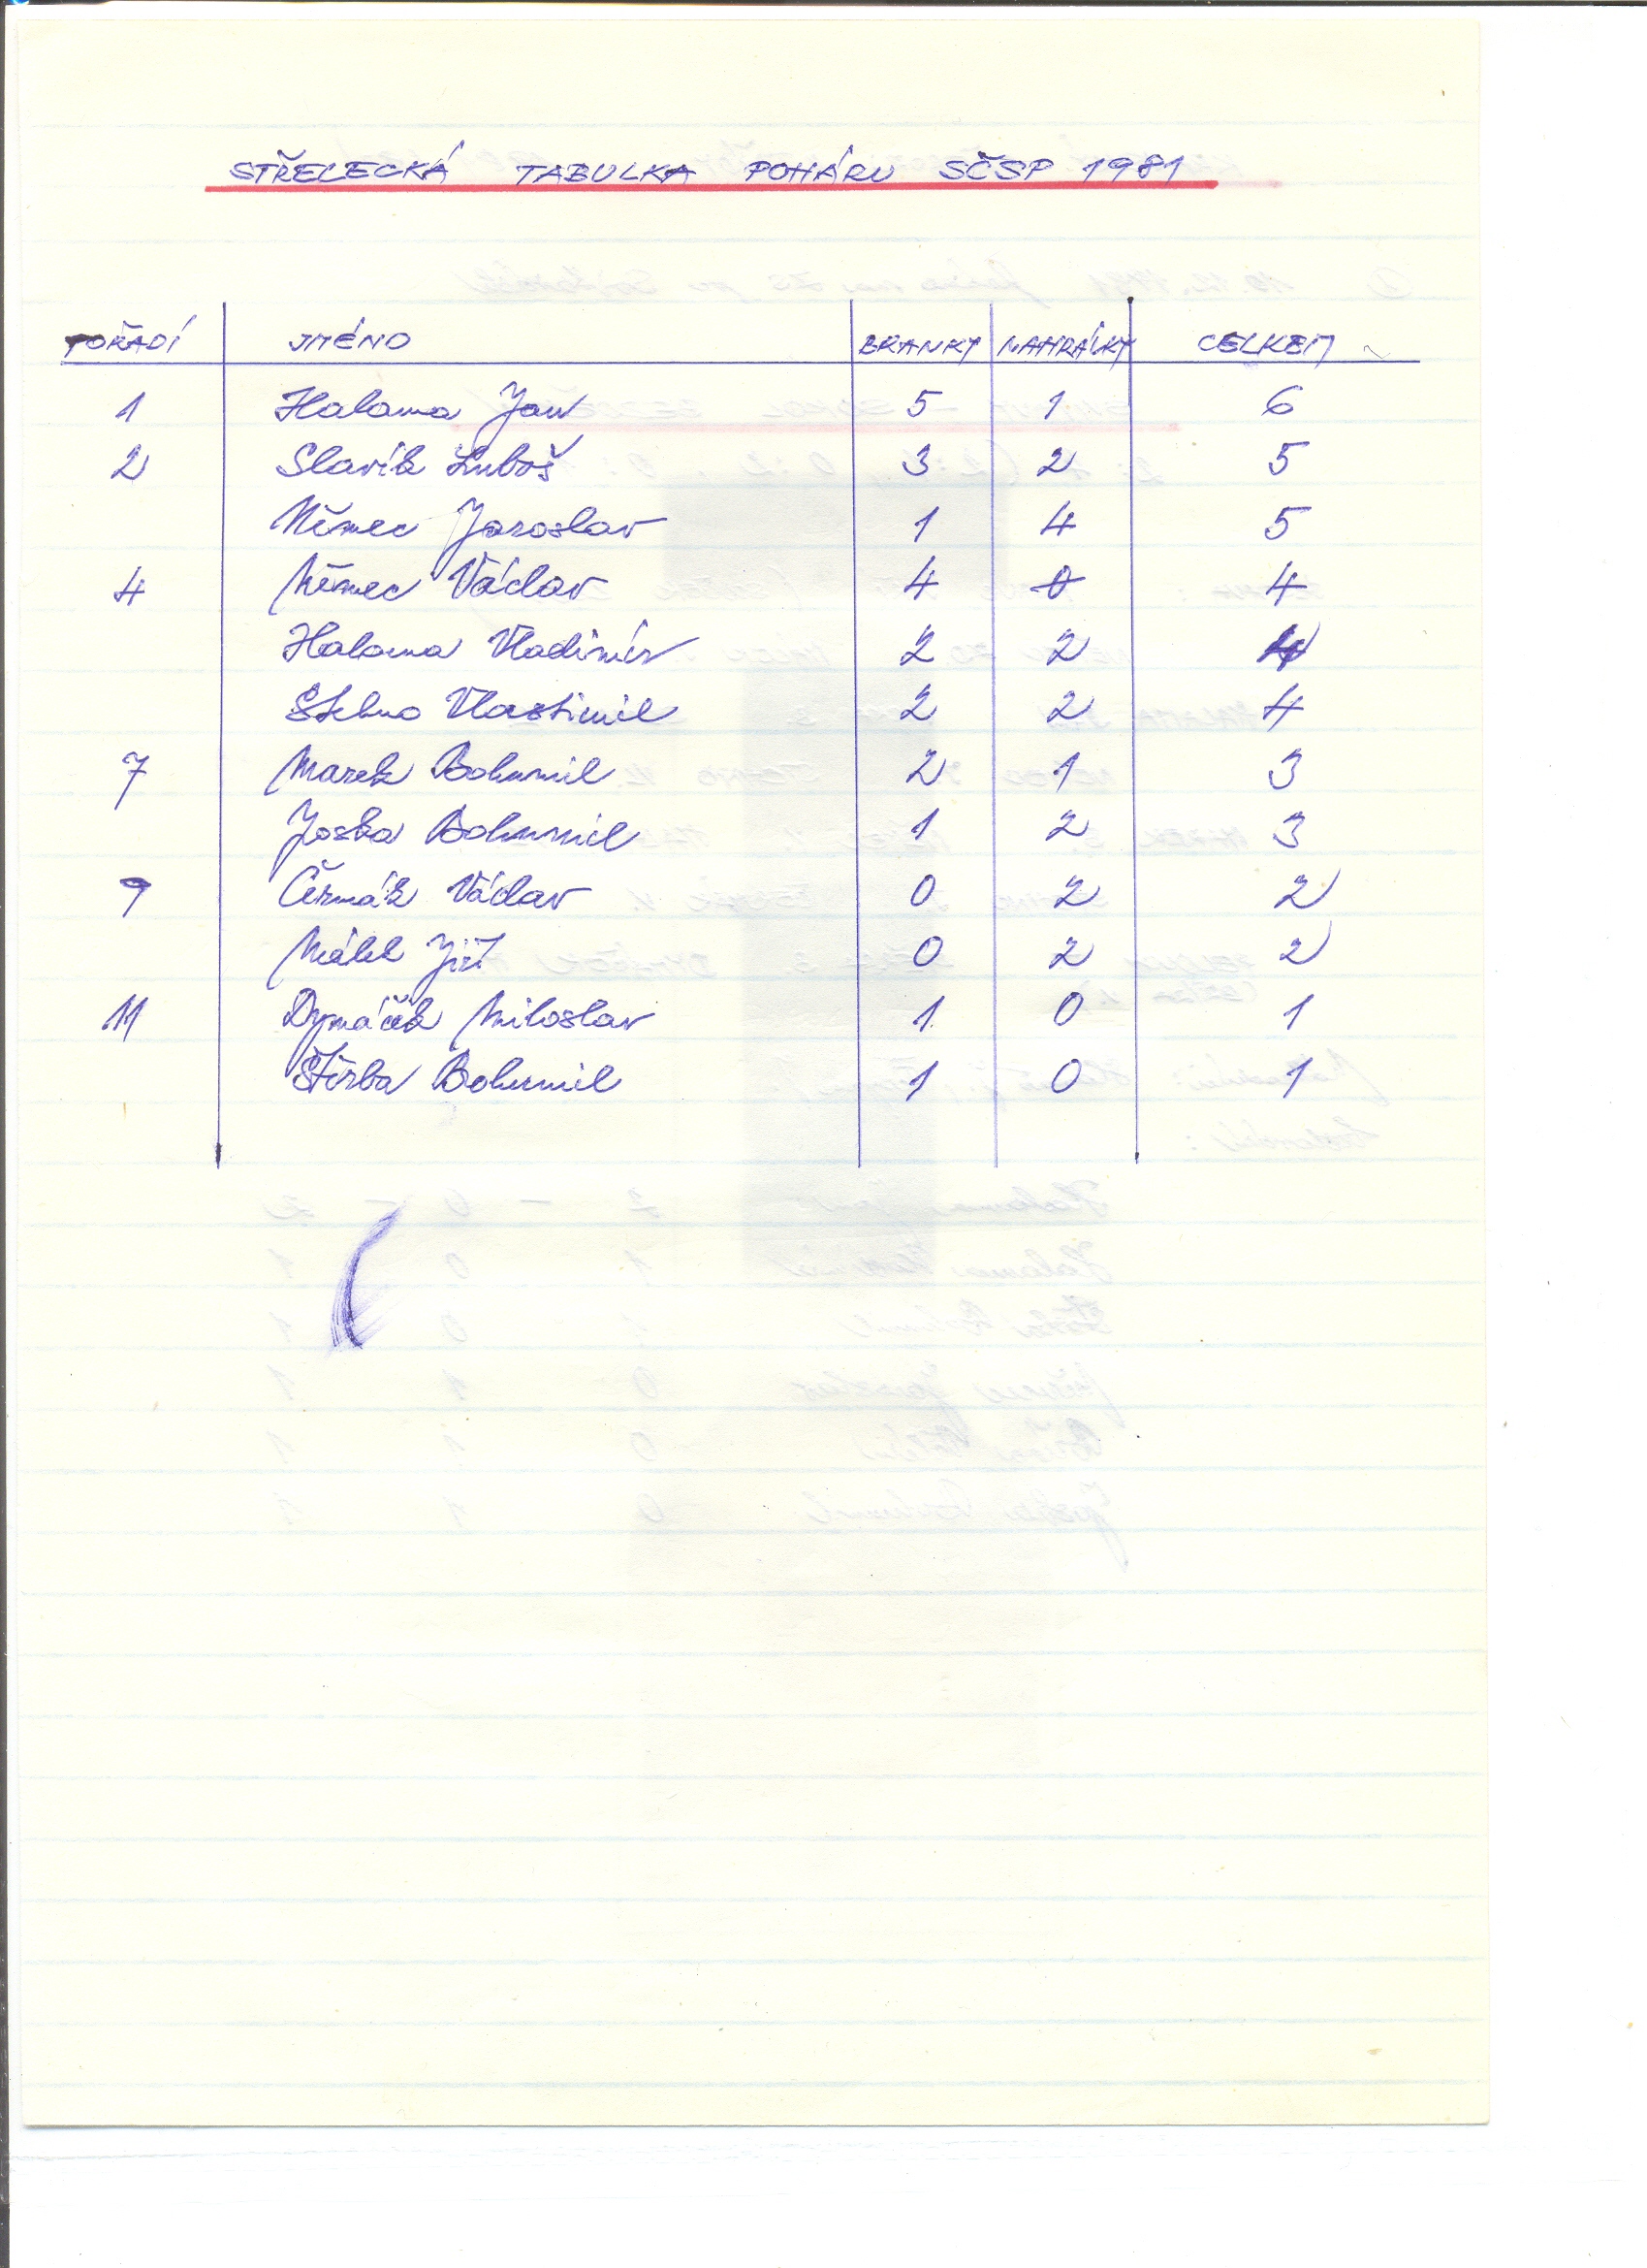 STŘELECKÁ TABULKA POHÁRU SČSP 1981
POŘADÍ JMÉNO BRANKY NAHRÁVKY CELKEM
1 Halama Jan 5 1 6
2 Slavík Luboš 3 2 5
Němec Jaroslav 1 4 5
4 Němec Václav 4 0 4
Halama Vladimír 2 2 4
Stehno Vlastimil 2 2 4
7 Marek Bohumil 2 1 3
Joska Bohumil 1 2 3
9 Čermák Václav 0 2 2
Jiří 0 2 2
11 Dymáček Miloslav 1 0 1
Štěrba Bohumil 1 0 1